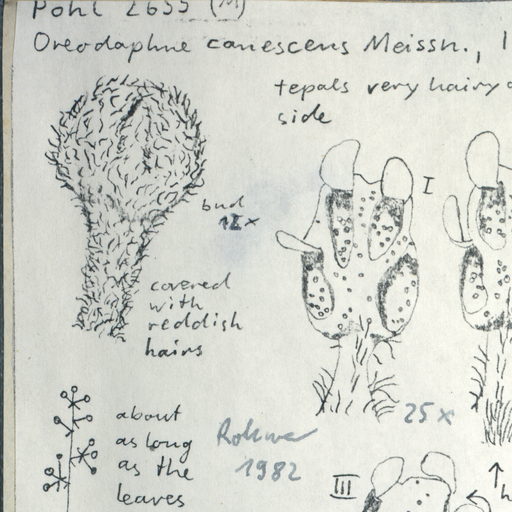 Pohl 2655 (M)
Oreodaphne canescens Meissn.,
tepals very hairy
side
I
bud
12x
covered
with
reddish
hairs
25x
about
as long
as the
leaves
Rohwer
1982
III